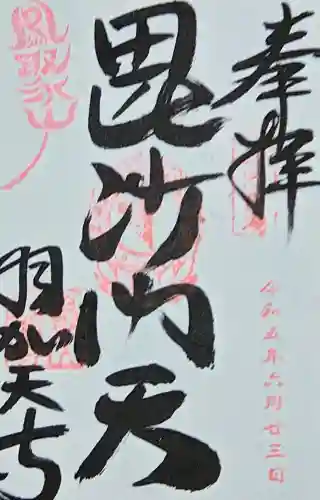 奉拝
令和五年六月廿三日
毘沙門天
鳳聚山
羽加天寺